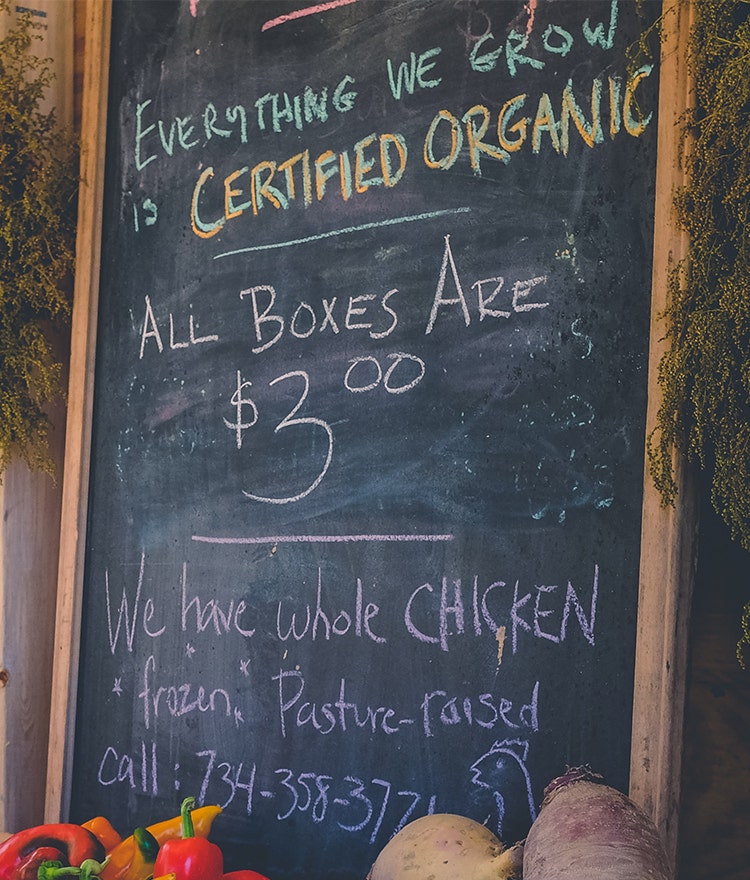 EVERYTHING WE GROW
is CERTIFIED ORGANIC
ALL BOXES ARE
$3.00
We have whole CHICKEN
frozen Pasture-raised
call: 734-358-377